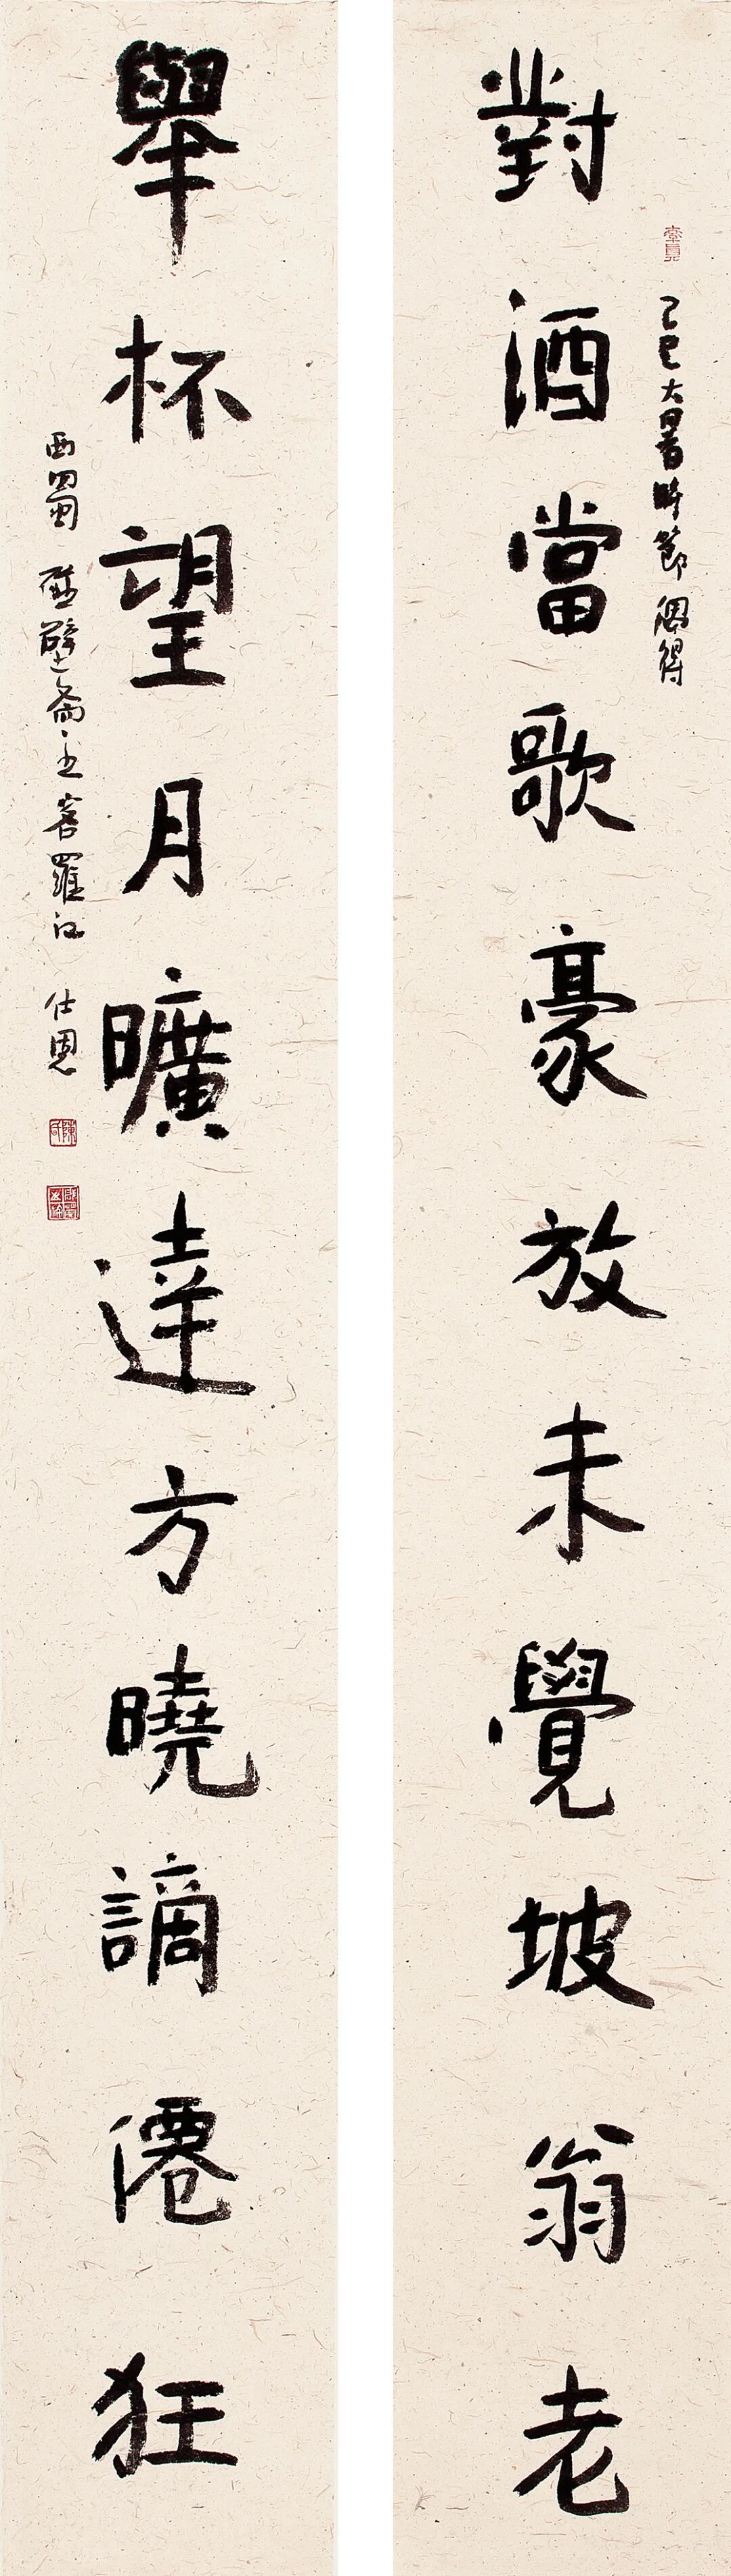 對酒當歌豪放未覺坡翁老
乙巳大暑時節偶得
舉杯望月曠達方曉謫僊狂
西蜀 壁齋主客羅江 仕恩